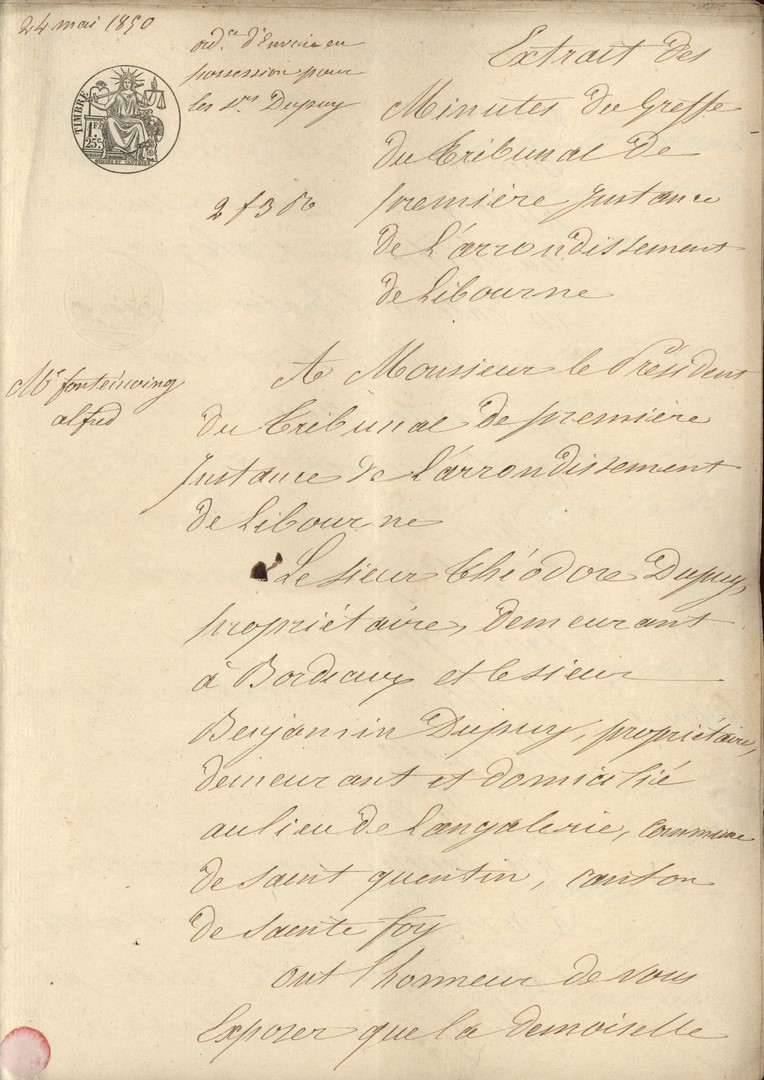 24 mai 1850
ord.ce d'Envoi en
possession pour
les srs Dupuy
TIMBRE
1 FR
25 C
2 f 3 50
Extrait des
Minutes du Greffe
du Tribunal de
première Instance
de l'arrondissement
de Libourne
Me
alfred
A Monsieur le Président
du Tribunal de première
Instance de l'arrondissement
de Libourne
Le sieur Théodore Dupuy,
propriétaire, demeurant
à Bordeaux et le sieur
Benjamin Dupuy, propriétaire,
demeurant et domicilié
au lieu de Langalerie, commune
de saint quentin, canton
de sainte foy
ont l'honneur de vous
Exposer que la demoiselle